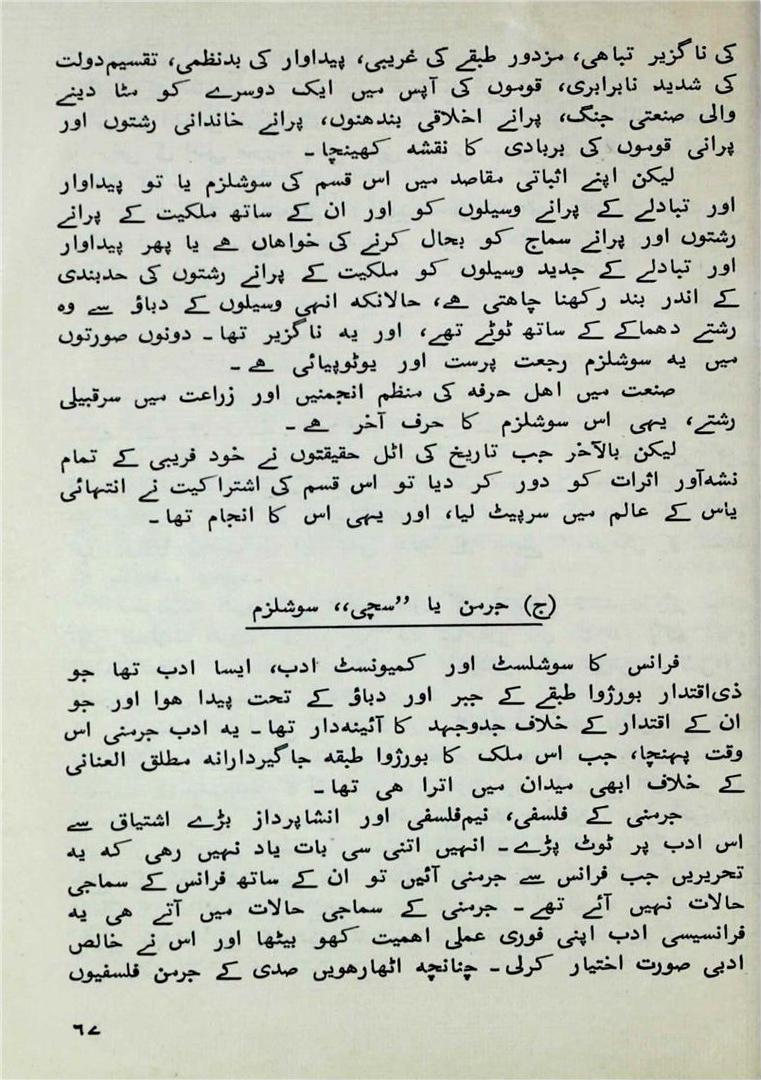 کی ناگزیر تباہی، مزدور طبقے کی غریبی، پیداوار کی بدنظمی، تقسیم‌دولت
کی شدید نابرابری، قوموں کی آپس میں ایک دوسرے کو مٹا دینے
والی صنعتی جنگ، پرانے اخلاقی بندھنوں، پرانے خاندانی رشتوں اور
پرانی قوموں کی بربادی کا نقشہ کھینچا۔
لیکن اپنے اثباتی مقاصد میں اس قسم کی سوشلزم یا تو پیداوار
اور تبادلے کے پرانے وسیلوں کو اور ان کے ساتھ ملکیت کے پرانے
رشتوں اور پرانے سماج کو بحال کرنے کی خواھاں ھے یا پھر پیداوار
اور تبادلے کے جدید وسیلوں کو ملکیت کے پرانے رشتوں کی حدبندی
کے اندر بند رکھنا چاھتی ھے، حالانکہ انہی وسیلوں کے دباؤ سے وہ
رشتے دھماکے کے ساتھ ٹوٹے تھے، اور یہ ناگزیر تھا۔ دونوں صورتوں
میں یہ سوشلزم رجعت پرست اور یوٹوپیائی ھے۔
صنعت میں اھل حرفہ کی منظم انجمنیں اور زراعت میں سرقبیلی
رشتے، یہی اس سوشلزم کا حرف آخر ھے۔
لیکن بالآخر جب تاریخ کی اٹل حقیقتوں نے خود فریبی کے تمام
نشہ‌آور اثرات کو دور کر دیا تو اس قسم کی اشتراکیت نے انتہائی
یاس کے عالم میں سرپیٹ لیا، اور یہی اس کا انجام تھا۔
(ج) جرمن یا ’’سچی،، سوشلزم
فرانس کا سوشلسٹ اور کمیونسٹ ادب، ایسا ادب تھا جو
ذی‌اقتدار بورژوا طبقے کے جبر اور دباؤ کے تحت پیدا ھوا اور جو
ان کے اقتدار کے خلاف جدوجہد کا آئینہ‌دار تھا۔ یہ ادب جرمنی اس
وقت پہنچا، جب اس ملک کا بورژوا طبقہ جاگیردارانہ مطلق العنانی
کے خلاف ابھی میدان میں اترا ھی تھا۔
جرمنی کے فلسفی، نیم‌فلسفی اور انشاپرداز بڑے اشتیاق سے
اس ادب پر ٹوٹ پڑے۔ انہیں اتنی سی بات یاد نہیں رھی کہ یہ
تحریریں جب فرانس سے جرمنی آئیں تو ان کے ساتھ فرانس کے سماجی
حالات نہیں آئے تھے۔ جرمنی کے سماجی حالات میں آتے ھی یہ
فرانسیسی ادب اپنی فوری عملی اھمیت کھو بیٹھا اور اس نے خالص
ادبی صورت اختیار کرلی۔ چنانچہ اٹھارھویں صدی کے جرمن فلسفیوں
٦٧